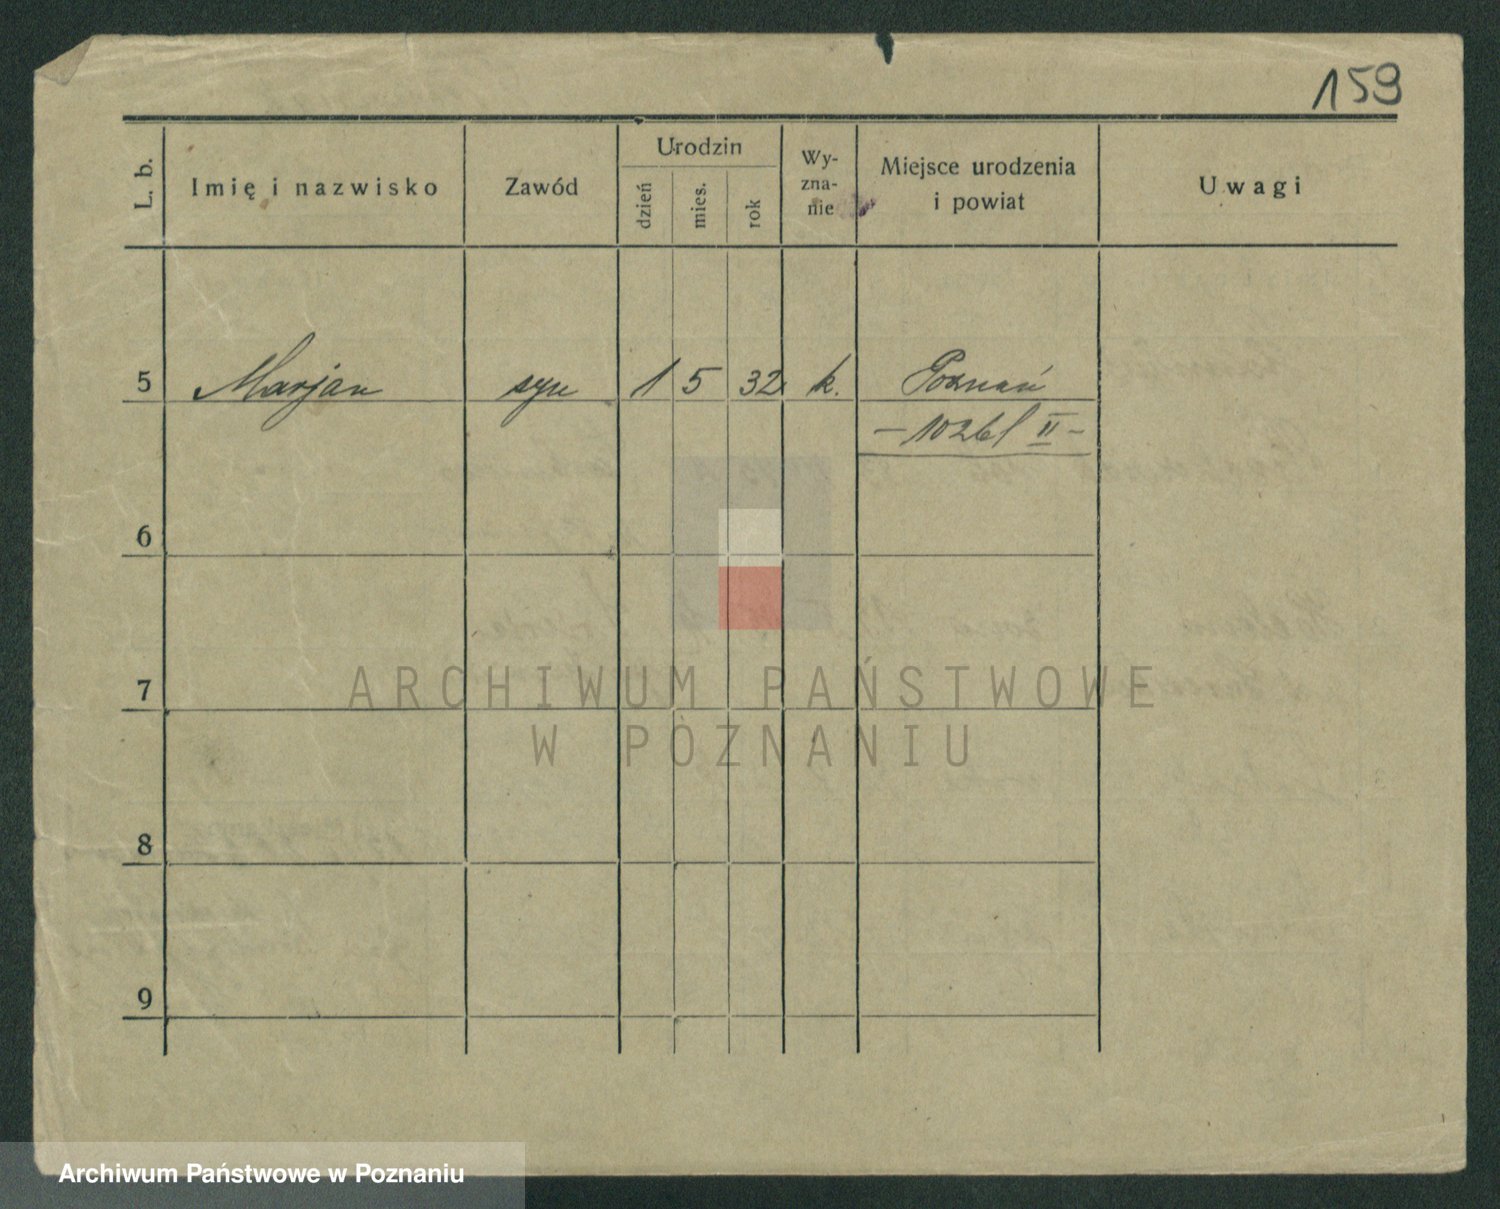 159
L. b.
Imię i nazwisko
Zawód
Urodzin
dzień
mies.
rok
Wy-
zna-
nie
Miejsce urodzenia
i powiat
Uwagi
5 Marjan syn 1 5 32 k. Poznań
6
7
8
9
ARCHIWUM PAŃSTWOWE
W POZNANIU
Archiwum Państwowe w Poznaniu